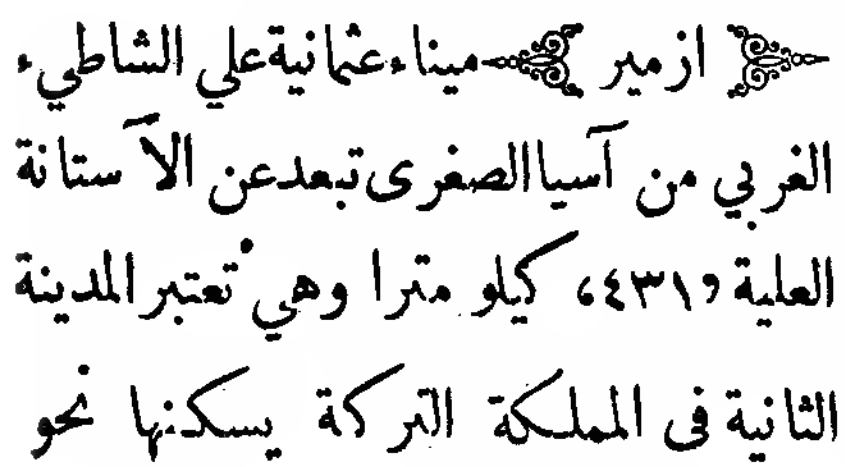 ﴿ ازمير ﴾ ميناء عثمانية علي الشاطيء
الغربي من آسيا الصغرى تبعد عن الآستانة
العلية «٤٣١» كيلو مترا وهي تعتبر المدينة
الثانية في المملكة التركة يسكنها نحو